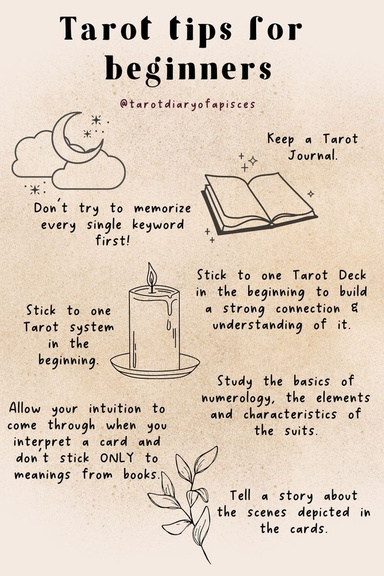 Tarot tips for
beginners
@tarotdiaryofapisces
Keep a Tarot
Journal.
Don't try to memorize
every single keyword
first!
Stick to one Tarot Deck
in the beginning to build
a strong connection &
understanding of it.
Stick to one
Tarot system
in the
beginning.
Study the basics of
numerology, the elements
and characteristics of
the suits.
Allow your intuition to
come through when you
interpret a card and
don't stick ONLY to
meanings from books.
Tell a story about
the scenes depicted in
the cards.